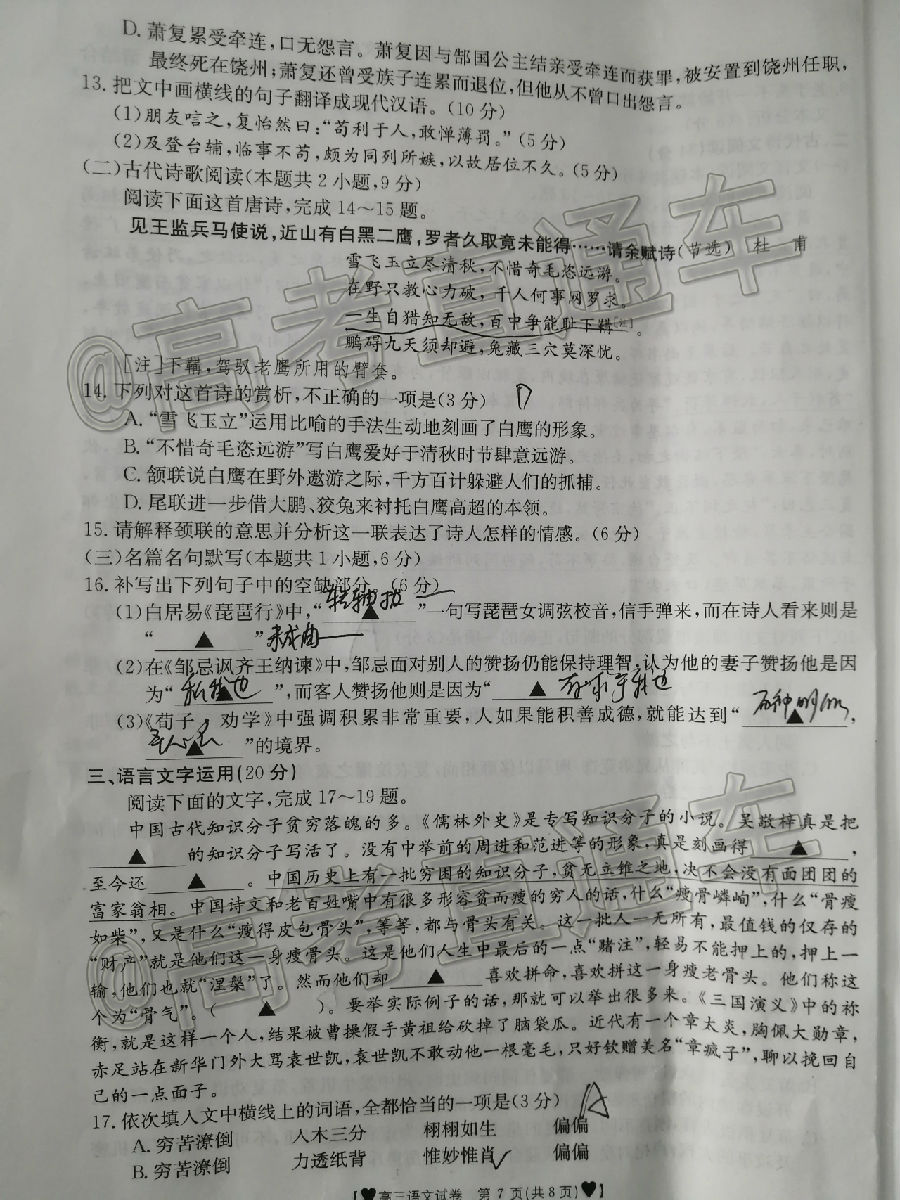 D. 萧复累受牵连，口无怨言。萧复因与郜国公主结亲受牵连而获罪，被安置到饶州任职，
最终死在饶州；萧复还曾受族子连累而退位，但他从不曾口出怨言。
13. 把文中画横线的句子翻译成现代汉语。(10分)
(1)朋友唁之，复怡然曰：“苟利于人，敢惮薄罚。”(5分)
(2)及登台辅，临事不苟，颇为同列所嫉，以故居位不久。(5分)
(二)古代诗歌阅读(本题共2小题，9分)
阅读下面这首唐诗，完成14～15题。
见王监兵马使说，近山有白黑二鹰，罗者久取竟未能得……请余赋诗(节选) 杜 甫
雪飞玉立尽清秋，不惜奇毛恣远游。
在野只教心力破，千人何事网罗求。
一生自猎知无敌，百中争能耻下鞲[注]。
鹏碍九天须却避，兔藏三穴莫深忧。
[注]下鞲，驾驭老鹰所用的臂套。
14. 下列对这首诗的赏析，不正确的一项是(3分) D
A. “雪飞玉立”运用比喻的手法生动地刻画了白鹰的形象。
B. “不惜奇毛恣远游”写白鹰爱好于清秋时节肆意远游。
C. 颔联说白鹰在野外遨游之际，千方百计躲避人们的抓捕。
D. 尾联进一步借大鹏、狡兔来衬托白鹰高超的本领。
15. 请解释颈联的意思并分析这一联表达了诗人怎样的情感。(6分)
(三)名篇名句默写(本题共1小题，6分)
16. 补写出下列句子中的空缺部分。(6分)
(1)白居易《琵琶行》中，“ 转轴拨 ▲ ”一句写琵琶女调弦校音，信手弹来，而在诗人看来则是
“ ▲ ” 未成曲
(2)在《邹忌讽齐王纳谏》中，邹忌面对别人的赞扬仍能保持理智，认为他的妻子赞扬他是因
为“ 私我也 ▲ ”，而客人赞扬他则是因为“ ▲ 有求于我也
(3)《荀子·劝学》中强调积累非常重要，人如果能积善成德，就能达到“ ▲ ，
▲ ”的境界。
三、语言文字运用(20分)
阅读下面的文字，完成17～19题。
中国古代知识分子贫穷落魄的多。《儒林外史》是专写知识分子的小说。吴敬梓真是把
▲ 的知识分子写活了。没有中举前的周进和范进等的形象，真是刻画得 ▲ ，
至今还 ▲ 。中国历史上有一批穷困的知识分子，贫无立锥之地，决不会没有面团团的
富家翁相。中国诗文和老百姓嘴中有很多形容贫而瘦的穷人的话，什么“瘦骨嶙峋”，什么“骨瘦
如柴”，又是什么“瘦得皮包骨头”，等等，都与骨头有关。这一批人一无所有，最值钱的仅存的
“财产”就是他们这一身瘦骨头。这是他们人生中最后的一点“赌注”，轻易不能押上的，押上一
输，他们也就“涅槃”了。然而他们却 ▲ 喜欢拼命，喜欢拼这一身瘦老骨头。他们称这
个为“骨气”。( ▲ )。要举实际例子的话，那就可以举出很多来。《三国演义》中的祢
衡，就是这样一个人，结果被曹操假手黄祖给砍掉了脑袋瓜。近代有一个章太炎，胸佩大勋章，
赤足站在新华门外大骂袁世凯，袁世凯不敢动他一根毫毛，只好钦赠美名“章疯子”，聊以挽回自
己的一点面子。
17. 依次填入文中横线上的词语，全都恰当的一项是(3分) A
A. 穷苦潦倒 入木三分 栩栩如生 偏偏
B. 穷苦潦倒 力透纸背 惟妙惟肖 偏偏
【♥高三语文试卷 第7页(共8页)♥】
@高考直通车
@高考直通车